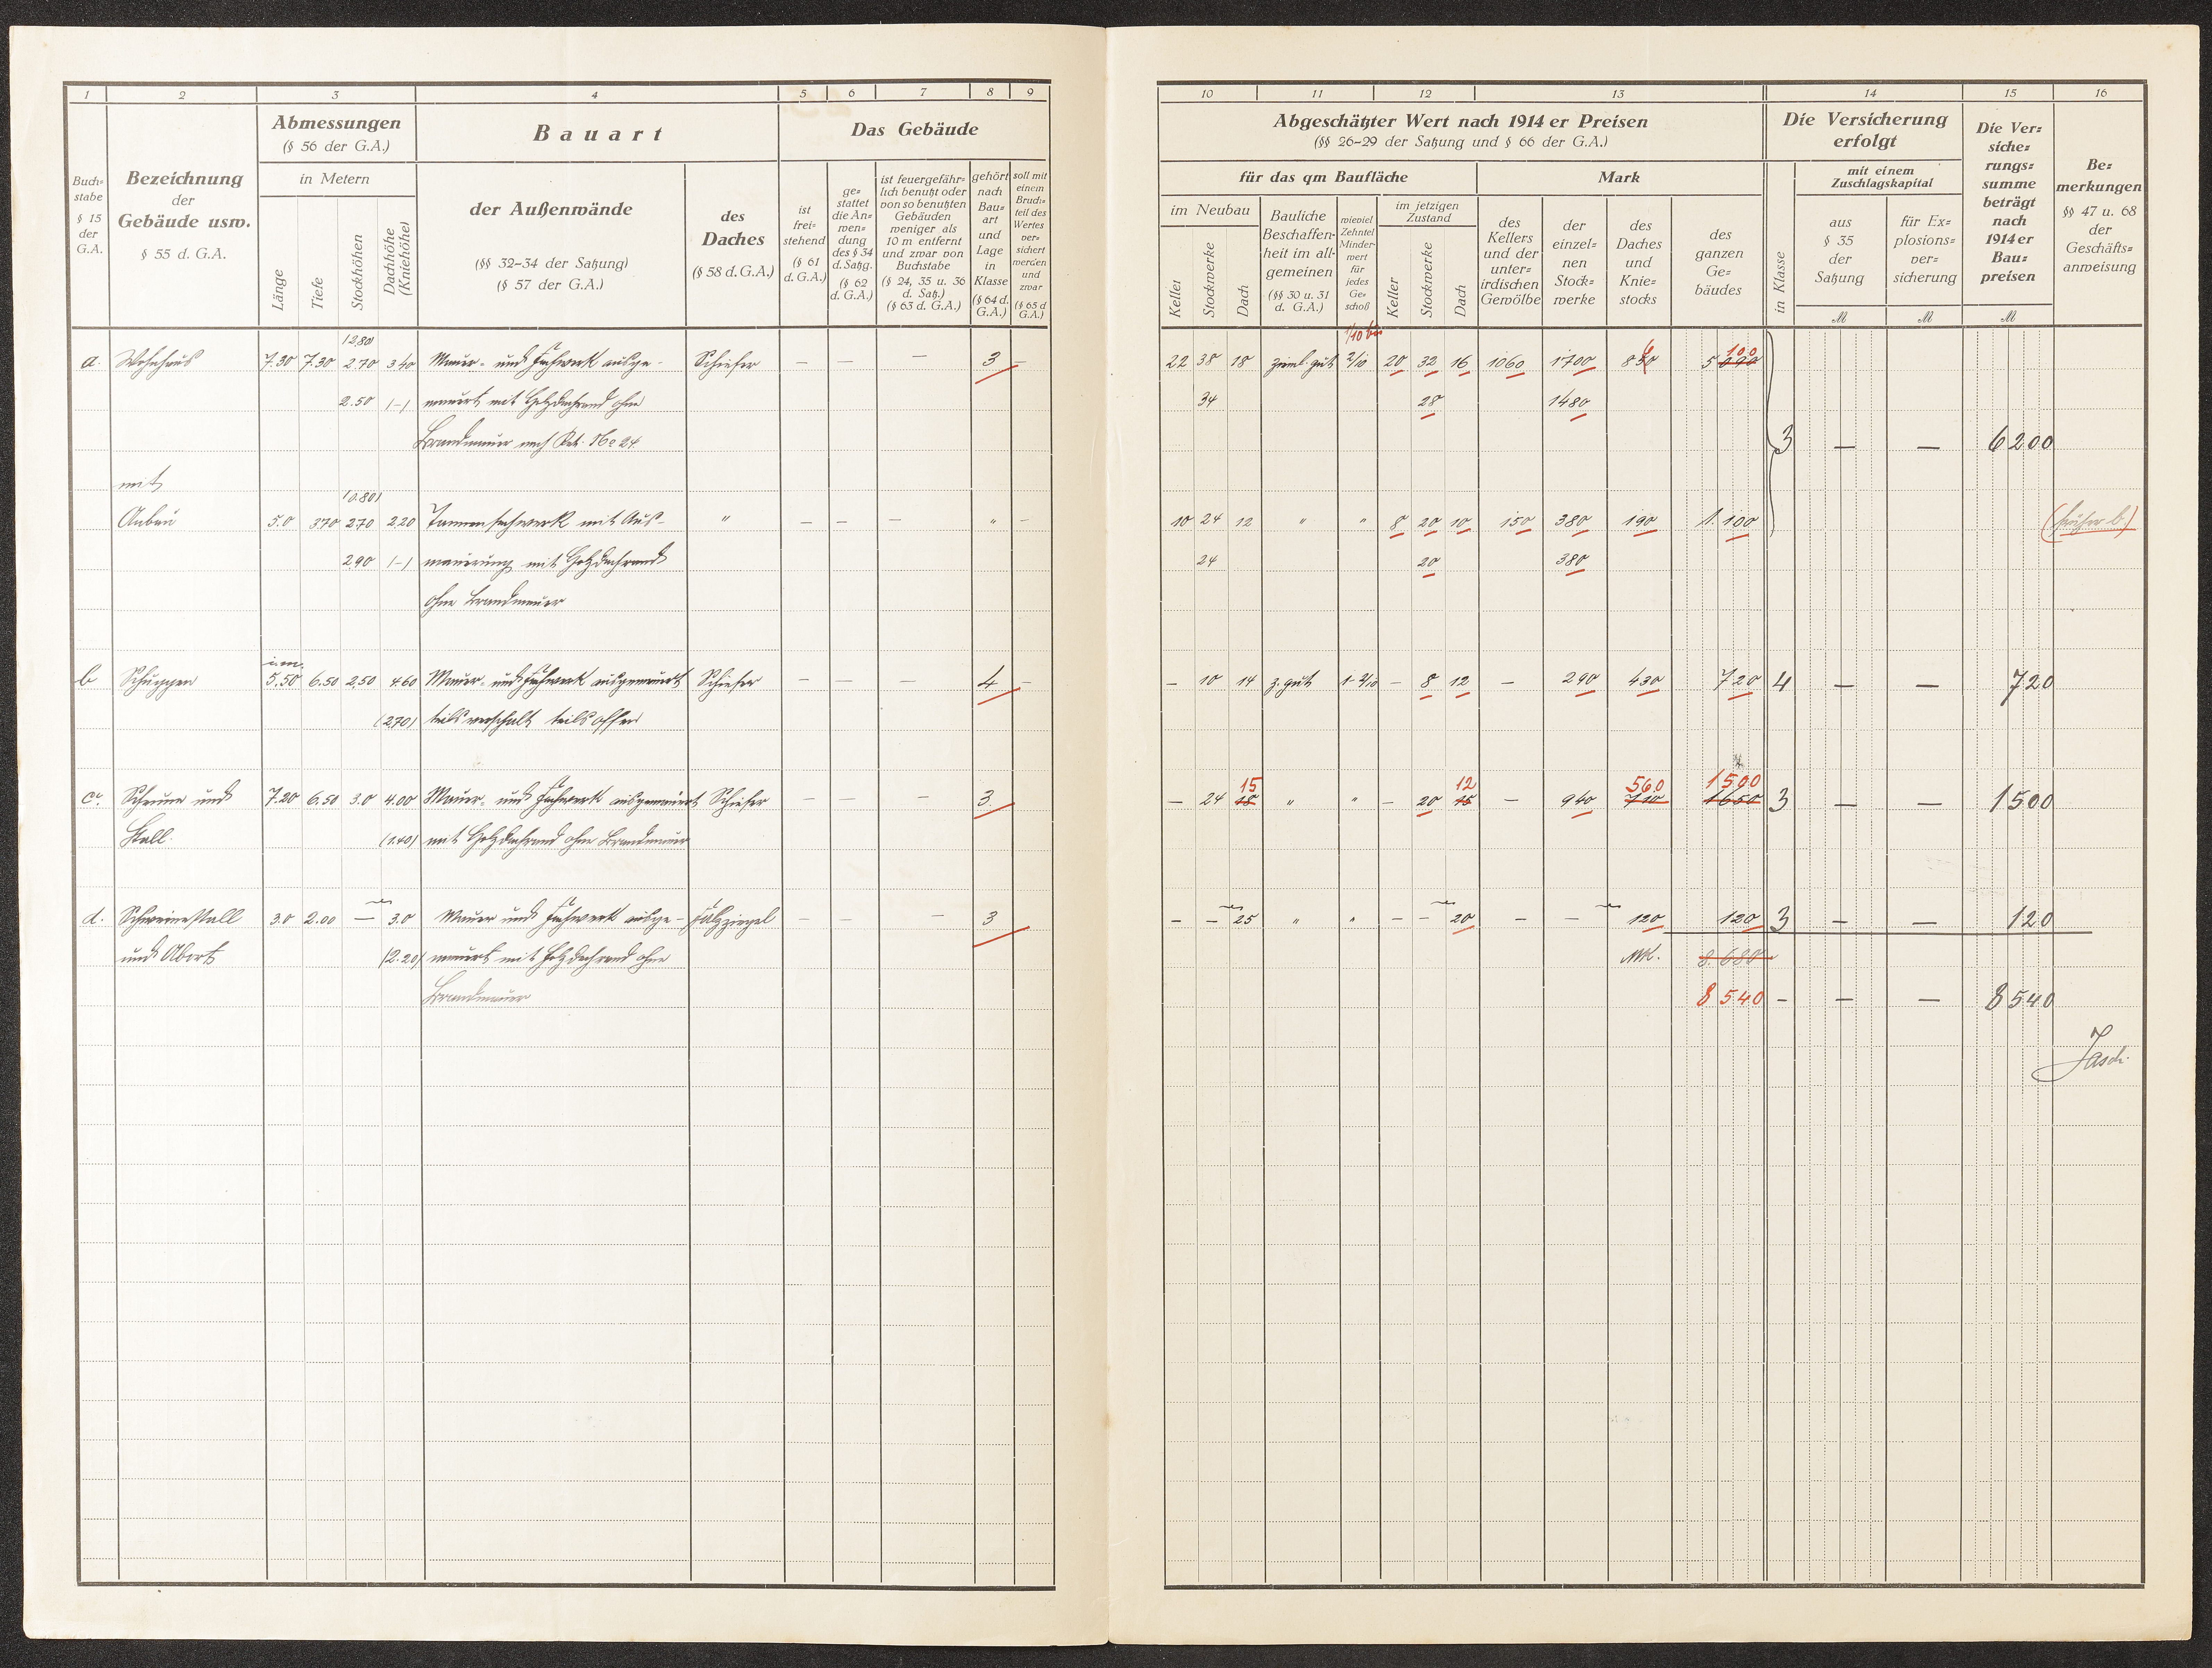 1 2 3 4 5 6 7 8 9
Abmessungen
(§ 56 der G.A.)
Bauart
Das Gebäude
Buch=
stabe
§ 15
der
G.A.
Bezeichnung
der
Gebäude usw.
§ 55 d. G.A.
in Metern
Länge
Tiefe
Stockhöhen
Dachhöhe
(Kniehöhe)
der Außenwände
(§§ 32-34 der Satzung)
(§ 57 der G.A.)
des
Daches
(§ 58 d. G.A.)
ist
frei=
stehend
(§ 61
d. G.A.)
ge=
stattet
die An=
wen=
dung
des § 34
d. Satzg.
(§ 62
d. G.A.)
ist feuergefähr=
lich benutzt oder
von so benutzten
Gebäuden
weniger als
10 m entfernt
und zwar von
Buchstabe
(§ 24, 35 u. 36
d. Satz.)
(§ 63 d. G.A.)
gehört
nach
Bau=
art
und
Lage
in
Klasse
(§ 64 d.
G.A.)
soll mit
einem
Bruch=
teil des
Wertes
ver=
sichert
werden
und
zwar
(§ 65 d
G.A.)
12.80
a. Wohnhaus 7.30 7.30 2.70 3.40 Mauer- und Fachwerk ausge- Schiefer — — — 3 —
2.50 (-) mauert mit Holzdachrand ohne
Brandmauer nach No 24
mit
(0.80)
Anbau 5.0 3.70 2.70 2.20 Tannenfachwerk mit Aus- " — — — " —
2.90 (-) mauerung mit Holzdachrand
ohne Brandmauer
i.m.
b Schuppen 5.50 6.50 2.50 4.60 Mauer- und Fachwerk ausgemauert Schiefer — — — 4 —
(2.70) teils verschalt teils offen
c. Scheune und 7.20 6.50 3.0 4.00 Mauer- und Fachwerk ausgemauert Schiefer — — — 3
Stall. (1.40) mit Holzdachrand ohne Brandmauer
d. Schweinestall 3.0 2.00 — 3.0 Mauer und Fachwerk ausge- Falzziegel — — — 3
und Abort (2.20) mauert mit Holzdachrand ohne
Brandmauer
10 11 12 13 14 15 16
Abgeschätzter Wert nach 1914 er Preisen
(§§ 26-29 der Satzung und § 66 der G.A.)
Die Versicherung
erfolgt
Die Ver=
siche=
rungs=
summe
beträgt
nach
1914 er
Bau=
preisen
Be=
merkungen
§§ 47 u. 68
der
Geschäfts=
anweisung
für das qm Baufläche
Mark
in Klasse
mit einem
Zuschlagskapital
im Neubau
Keller
Stockwerke
Dach
Bauliche
Beschaffen=
heit im all=
gemeinen
(§§ 30 u. 31
d. G.A.)
wieviel
Zehntel
Minder=
wert
für
jedes
Ge=
schoß
im jetzigen
Zustand
Keller
Stockwerke
Dach
des
Kellers
und der
unter=
irdischen
Gewölbe
der
einzel=
nen
Stock=
werke
des
Daches
und
Knie=
stocks
des
ganzen
Ge=
bäudes
aus
§ 35
der
Satzung
für Ex=
plosions=
ver=
sicherung
M M M
1/10 bis
22 38 18 ziml. gut 2/10 20 32 16 1060 1700 850 5090 100
34 28 1480
3 — — 6200
10 24 12 " " 8 20 10 150 380 190 1.100 (früher b.)
24 20 380
— 10 14 z. gut 1-2/10 — 8 12 — 290 430 720 4 — — 720
15 12 560 1500
— 24 18 " " — 20 15 — 940 710 1650 3 — — 1500
— — 25 " " — — 20 — — 120 120 3 — — 120
MK. 8.680
8540 — — — 8540
Jasch.